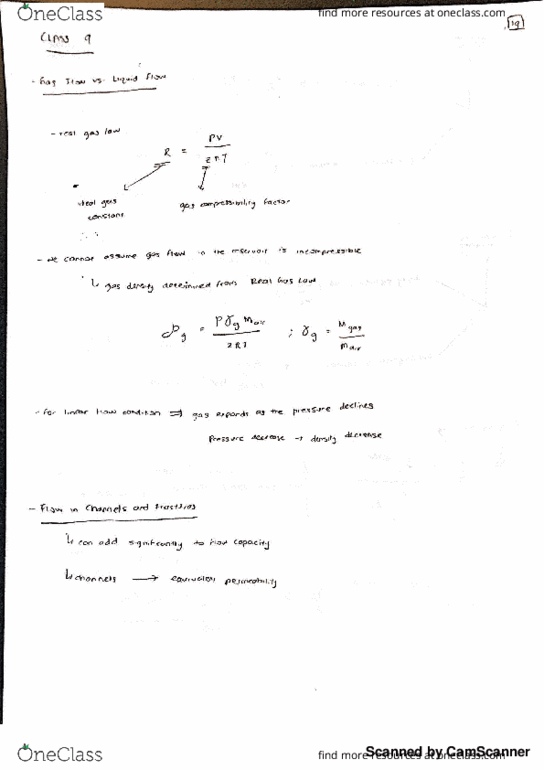 OneClass
find more resources at oneclass.com
19
Class 9
- Gas Flow vs. Liquid Flow
- real gas law
R = PV / ZRT
ideal gas constant
gas compressibility factor
- We cannot assume gas flow in the reservoir is incompressible
↳ gas density determined from Real Gas Law
ρg = PγgMair / ZRT ; γg = Mgas / Mair
- For linear flow condition ⇒ gas expands as the pressure declines
Pressure decrease → density decrease
- Flow in Channels and Fractures
↳ can add significantly to flow capacity
↳ channels → equivalent permeability
OneClass
find more resources at oneclass.com
Scanned by CamScanner